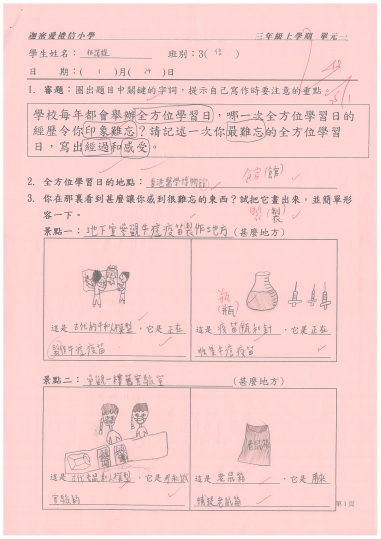 迦密愛禮信小學
三年級上學期 單元一
學生姓名：
班別：3(信)
日 期：(1)月(29)日
1. 審題：圈出題目中關鍵的字詞，提示自己寫作時要注意的重點。
學校每年都會舉辦全方位學習日，哪一次全方位學習日的
經歷令你印象難忘？請記述一次你最難忘的全方位學習
日，寫出經過和感受。
2. 全方位學習日的地點：香港醫學博物館
館(館)
3. 你在那裏看到甚麼讓你感到很難忘的東西？試把它畫出來，並簡單形
容一下。
製(製)
景點一：地下室參觀牛痘疫苗製作地方(甚麼地方)
瓶
(瓶)
這是古代的牛和人模型，它是正在
製作牛痘疫苗
這是疫苗瓶和針，它是正在
收集牛痘疫苗
景點二：參觀一樓舊實驗室(甚麼地方)
老鼠籠
這是古代老鼠和人模型，它是用來做
實驗的
這是老鼠籠，它是用來
捕捉老鼠籠
第1頁